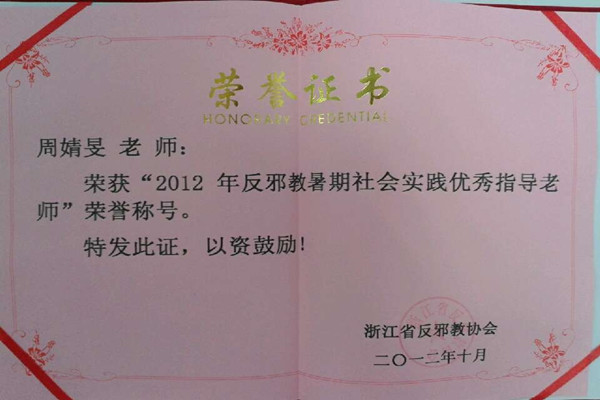 荣誉证书
HONORARY CREDENTIAL
周婧旻 老 师：
荣获“2012 年反邪教暑期社会实践优秀指导老
师”荣誉称号。
特发此证，以资鼓励!
浙江省反邪教协会
二〇一二年十月